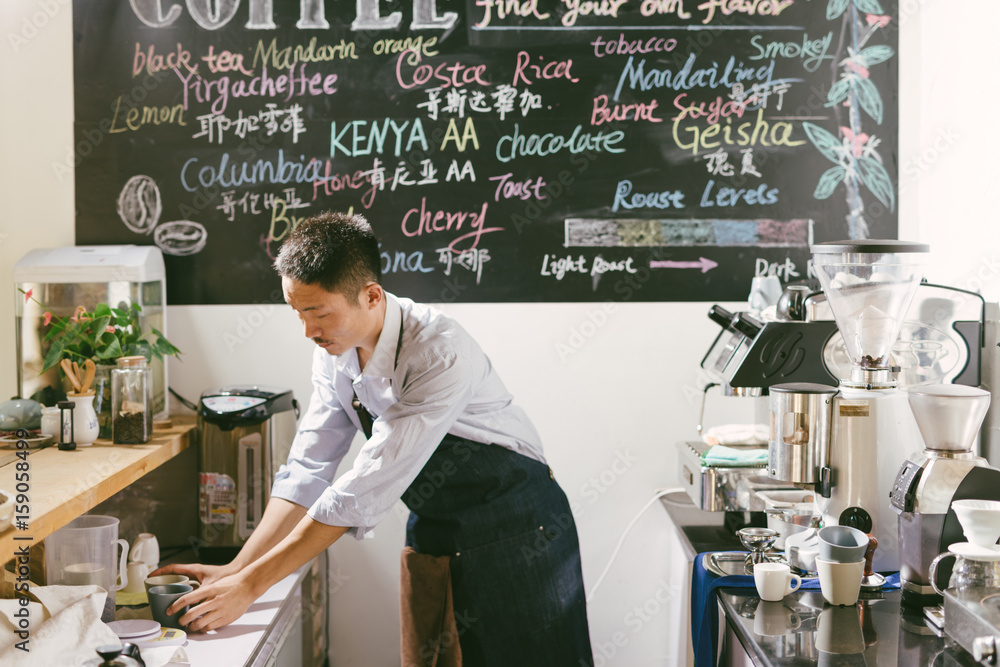 COFFEE
find your own flavor
black tea Mandarin orange tobacco Smokey
Yirgacheffee Costa Rica Mandailing
哥斯达黎加
Lemon Burnt Sugar Geisha
耶加雪菲 KENYA AA chocolate 瑰夏
Columbia Honey 肯尼亚 AA Toast Roast Levels
哥伦比亚
Cherry
Light Roast Dark
Adobe Stock | #159058499